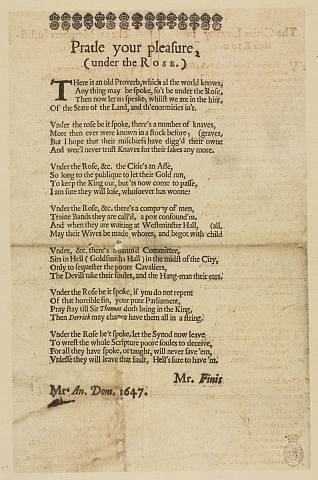 Prate your pleasure,
(under the ROSE.)
THere is an old Proverb, which al the world knows,
Any thing may be spoke, so't be under the Rose,
Then now let us speake, whilst we are in the hint,
Of the State of the Land, and th'enormities in't.
Vnder the Rose be it spoke, there's a number of knaves,
More then ever were known in a stock before; (graves,
But I hope that their mischiefs have digg'd their owne
And wee'l never trust Knaves for their sakes any more.
Vnder the Rose, &c. the Citie's an Asse,
So long to the publique to let their Gold run,
To keep the King out, but 'tis now come to passe,
I am sure they will lose, whosoever has wonne:
Vnder the Rose, &c. there's a company of men,
Traine Bands they are call'd, a pox confound'm.
And when they are waiting at Westminster Hall, (all.
May their Wives be made whores, and begot with child
Vnder, &c. there's damn'd Committee,
Sits in Hell (Goldsmiths Hall) in the midst of the City,
Only to sequester the poore Cavaliers,
The Devill take their soules, and the Hang-man their ears.
Vnder the Rose be it spoke, if you do not repent
Of that horrible sin, your pure Parliament,
Pray stay till Sir Thomas doth bring in the King,
Then Derrick may chance have them all in a string.
Vnder the Rose be't spoke, let the Synod now leave
To wrest the whole Scripture poore soules to deceive,
For all they have spoke, or taught, will never save 'em,
Vnlesse they will leave that fault, Hell's sure to have 'm.
Mr. Finis
Mrs An. Dom. 1647.